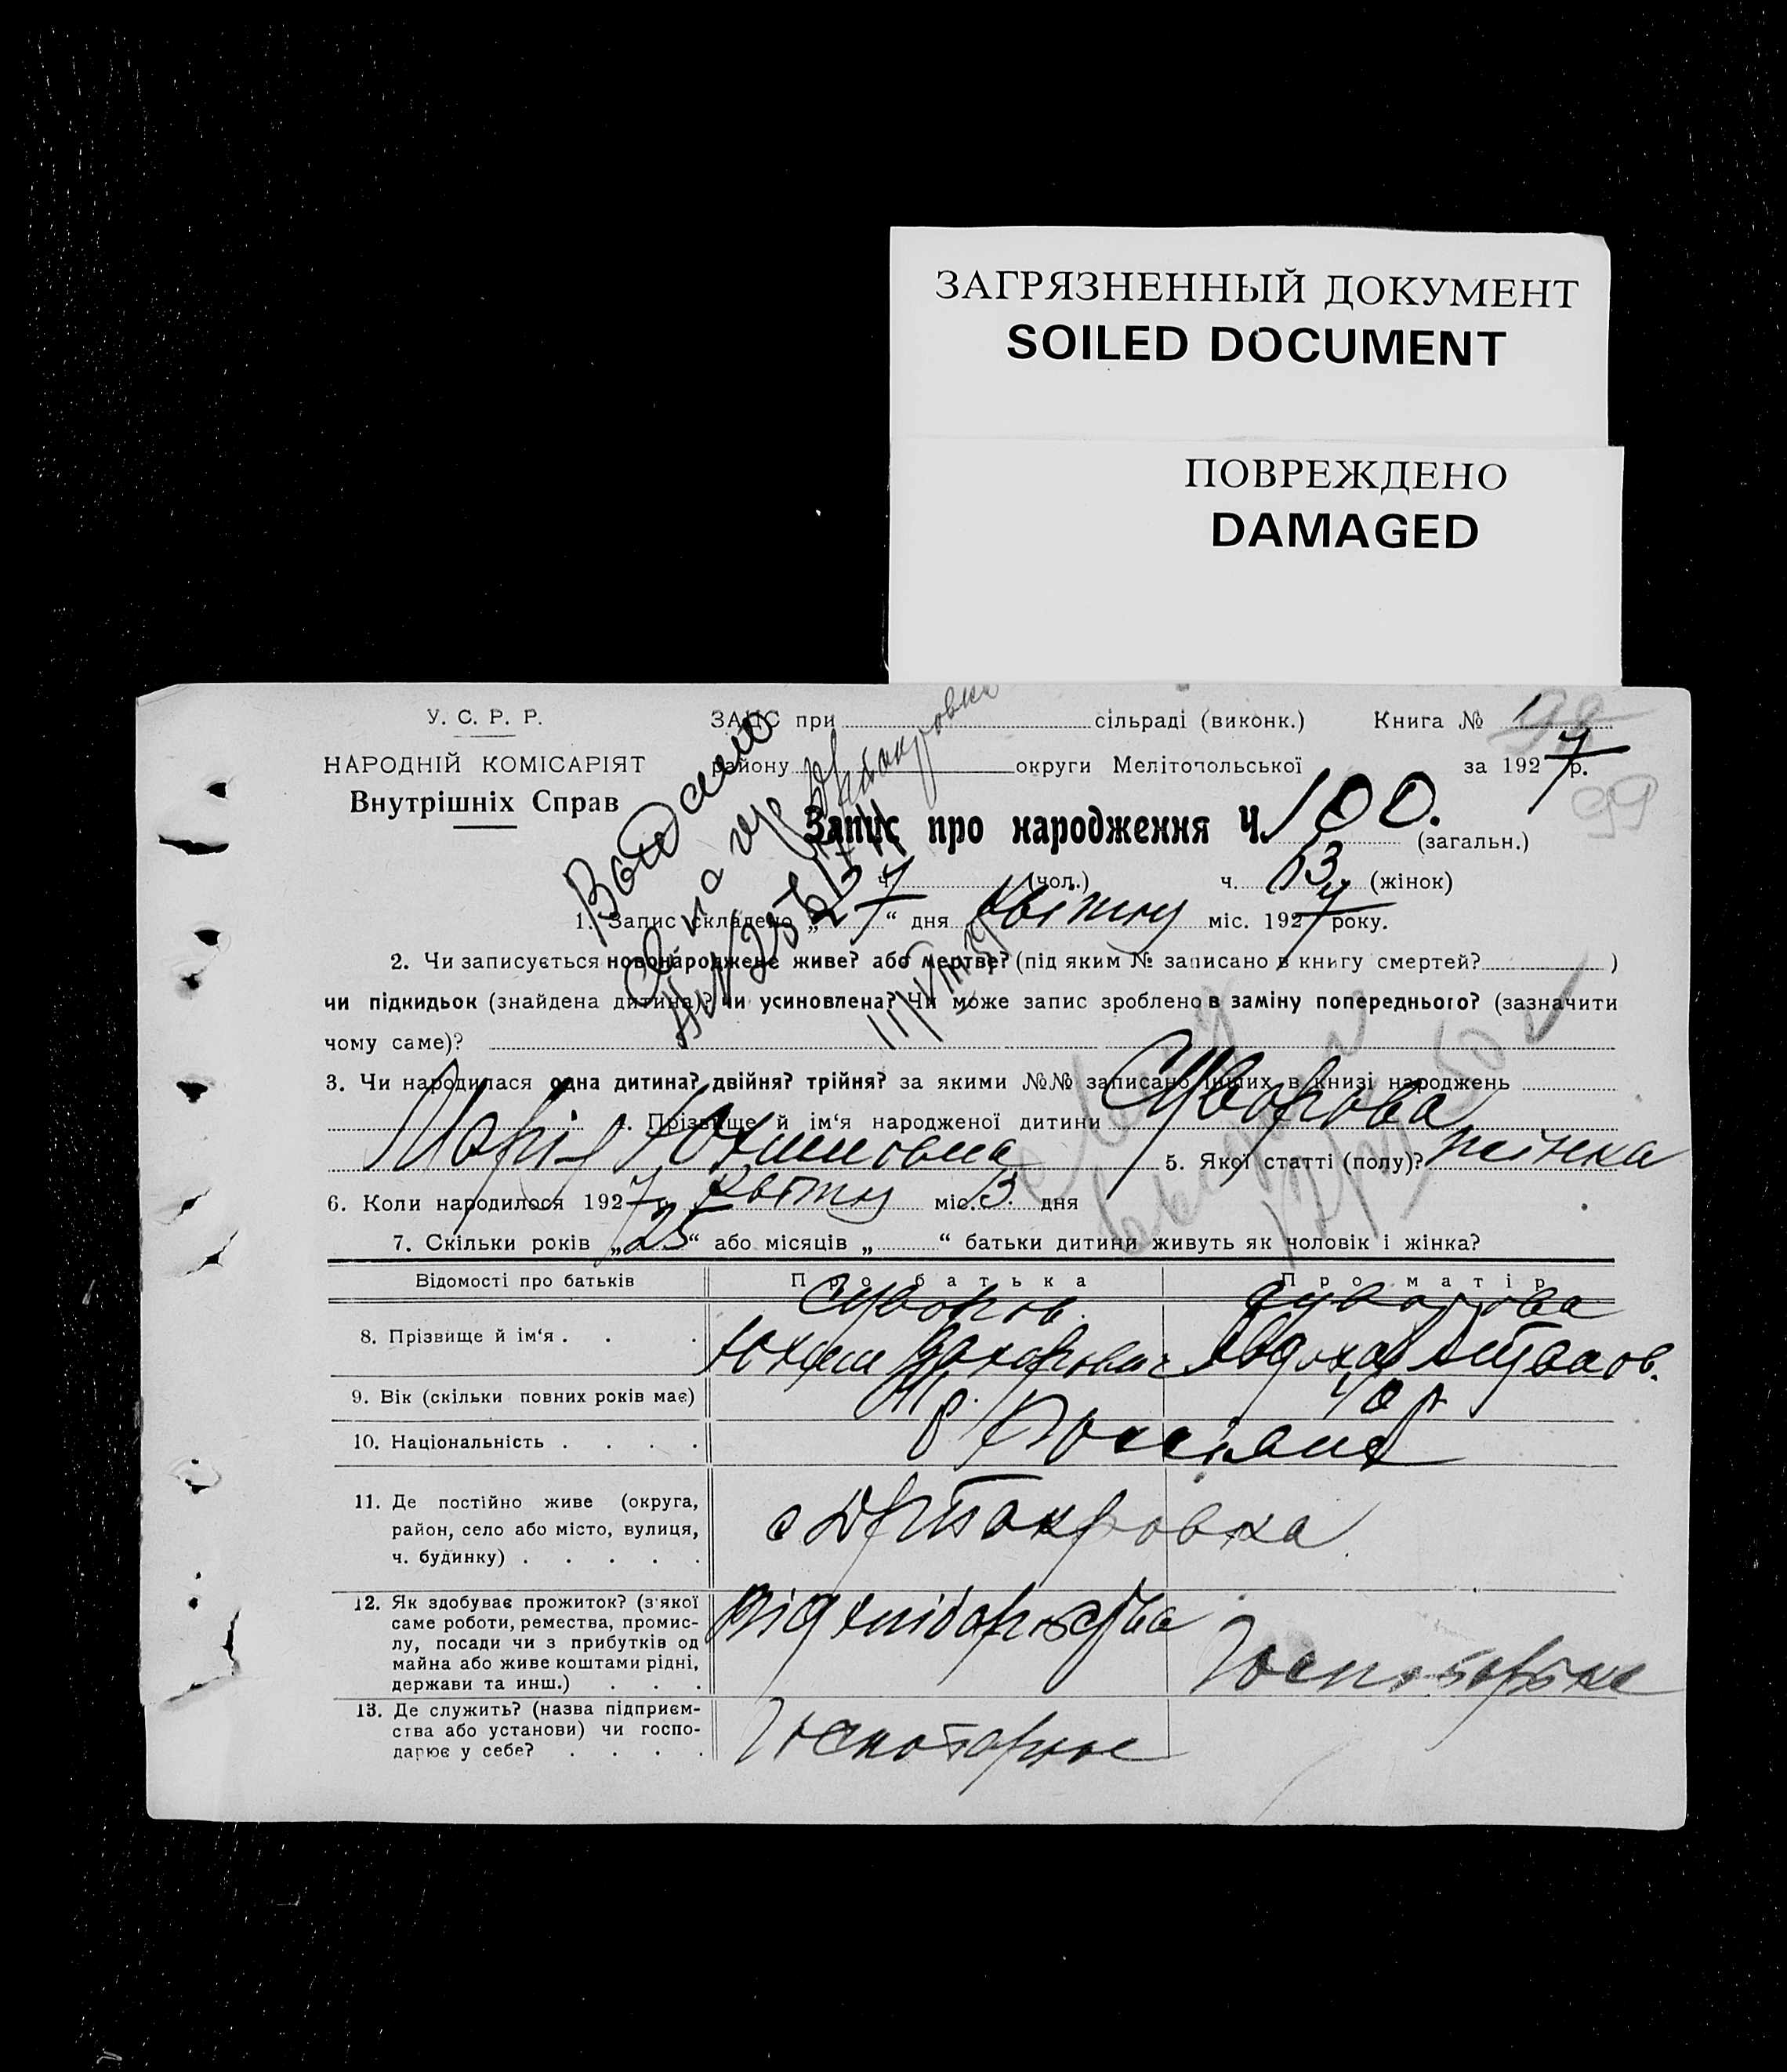 ЗАГРЯЗНЕННЫЙ ДОКУМЕНТ
SOILED DOCUMENT
ПОВРЕЖДЕНО
DAMAGED
У. С. Р. Р.
НАРОДНІЙ КОМІСАРІЯТ
Внутрішніх Справ
ЗАПИС при сільраді (виконк.) Книга № 1
району округи Мелітопольської за 1927 р.
99
Запис про народження Ч. 100. (загальн.)
ч. (чол.) ч. 53 (жінок)
1. Запис складено „27“ дня квітня міс. 1927 року.
2. Чи записується новонароджене живе? або мертве? (під яким № записано в книгу смертей? )
чи підкидьок (знайдена дитина)? чи усиновлена? Чи може запис зроблено в заміну попереднього? (зазначити
чому саме)?
3. Чи народилася одна дитина? двійня? трійня? за якими №№ записано інших в книзі народжень
4. Прізвище й ім‘я народженої дитини Суворова
Марія Юхимовна 5. Якої статті (полу)? жінка
6. Коли народилося 1927 р. квітня міс. 13 дня
7. Скільки років „25“ або місяців „ “ батьки дитини живуть як чоловік і жінка?
Відомості про батьків Про батька Про матір
8. Прізвище й ім‘я . . . Суворов Суворова
Юхим Захарович Авдохия
9. Вік (скільки повних років має) 40
10. Національність . . . . Россіяне
11. Де постійно живе (округа,
район, село або місто, вулиця,
ч. будинку) . . . . .
12. Як здобуває прожиток? (з‘якої
саме роботи, ремества, промис-
лу, посади чи з прибутків од
майна або живе коштами рідні,
держави та инш.) . . .
Від хліборобства
13. Де служить? (назва підприєм-
ства або установи) чи госпо-
дарює у себе? . . . .